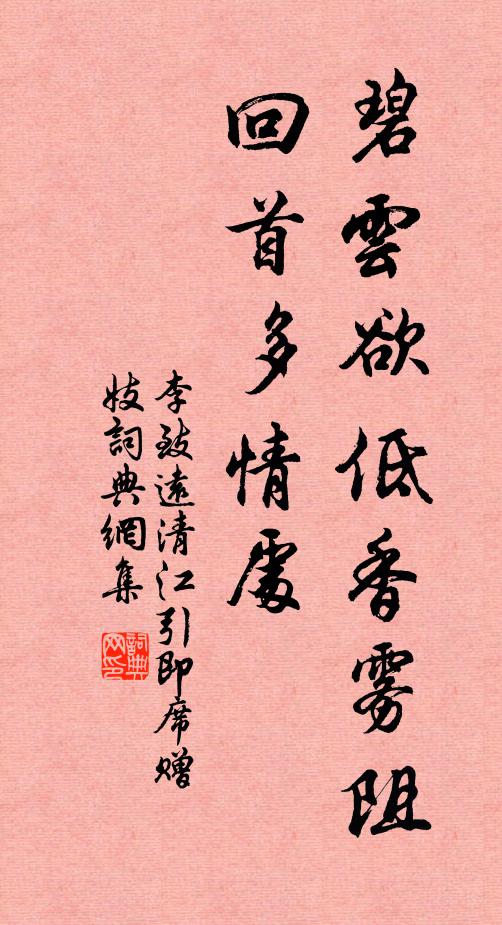 碧雲欲低香雾阻
回首多情處
李致遠清江引即席赠
妓詞典網集
詞典网印